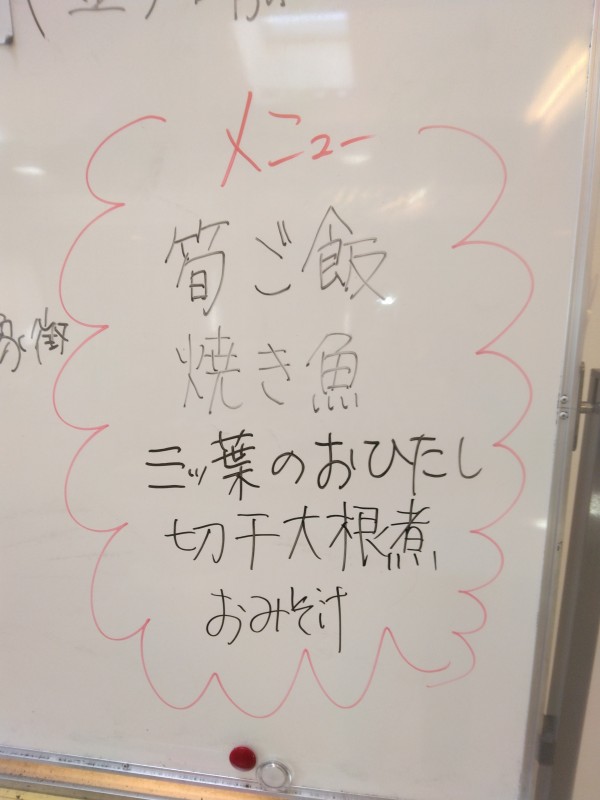 メニュー
筍ご飯
焼き魚
三ッ葉のおひたし
切干大根煮
おみそ汁